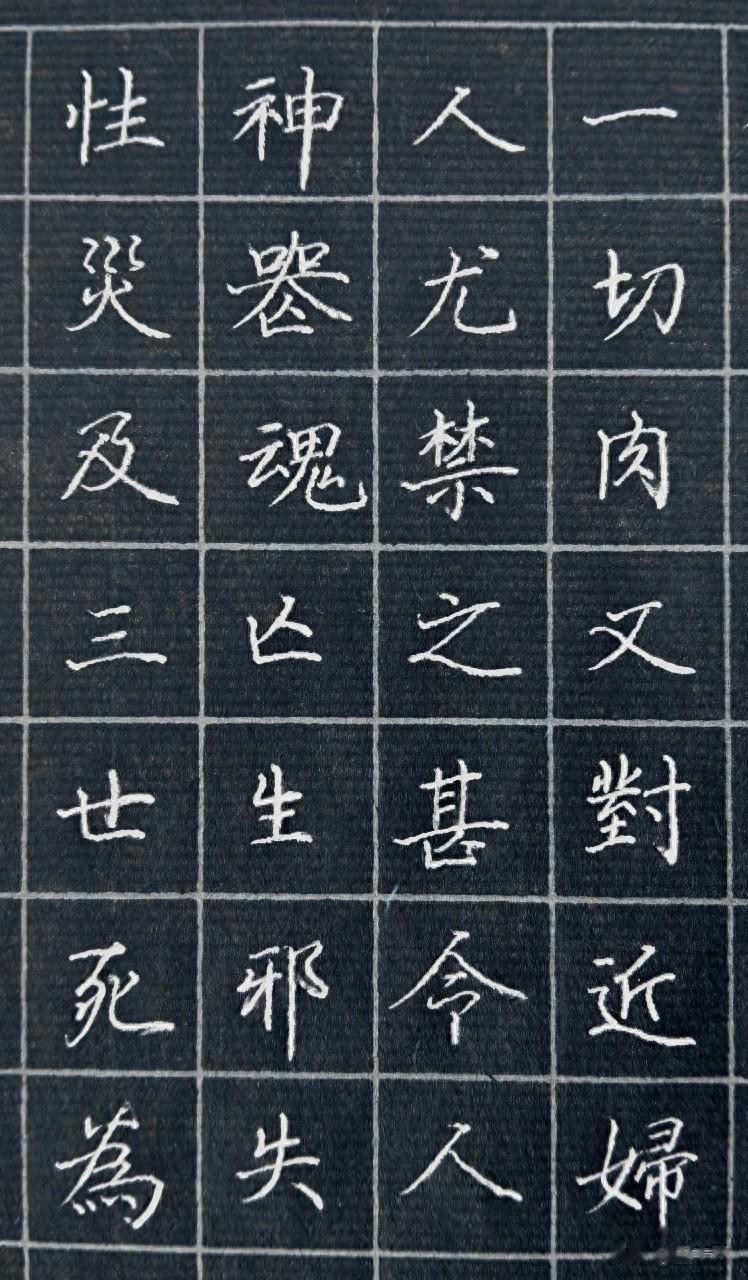 一切肉又對近婦
人尤禁之甚令人
神器魂亡生邪失
性災及三世死為